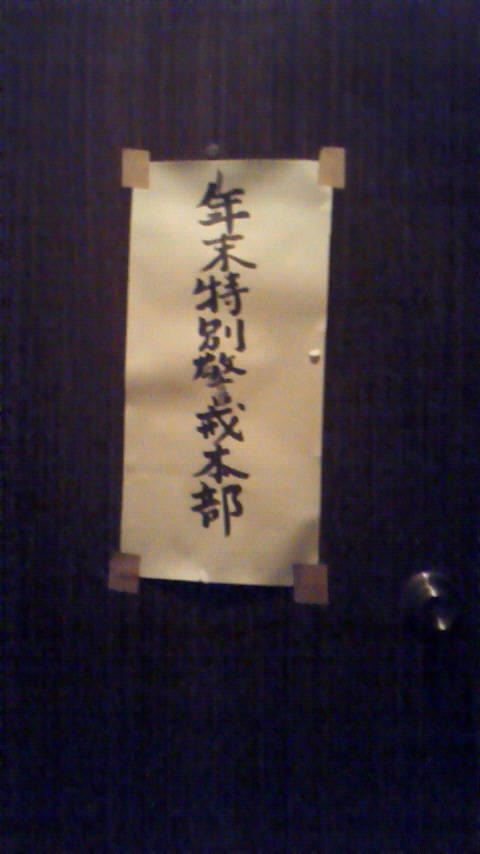 年末特別警戒本部